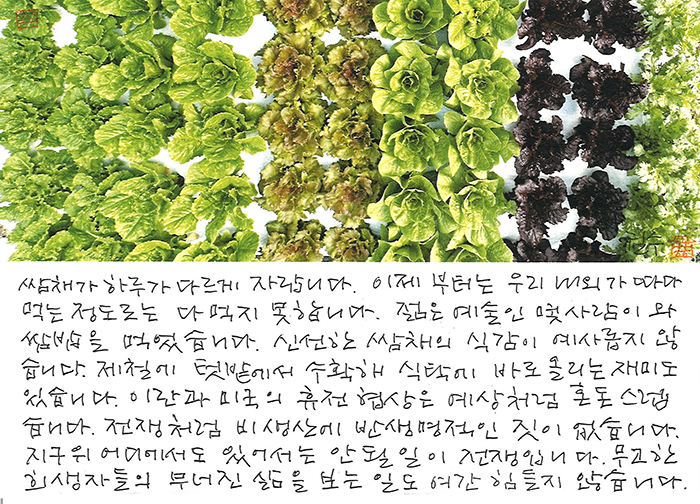 쌈채가 하루가 다르게 자랍니다. 이제 부터는 우리 내외가 따다
먹는 정도로는 다 먹지 못합니다. 젊은 예술인 몇사람이 와
쌈밥을 먹었습니다. 신선한 쌈채의 식감이 예사롭지 않
습니다. 제철에 텃밭에서 수확해 식탁에 바로 올리는 재미도
있습니다. 이란과 미국의 휴전 협상은 예상처럼 혼돈 스럽
습니다. 전쟁처럼 비생산에 반생명적인 짓이 없습니다.
지구위 어디에서도 있어서는 안될 일이 전쟁입니다. 무고한
희생자들의 무너진 삶을 보는 일도 여간 힘들지 않습니다.